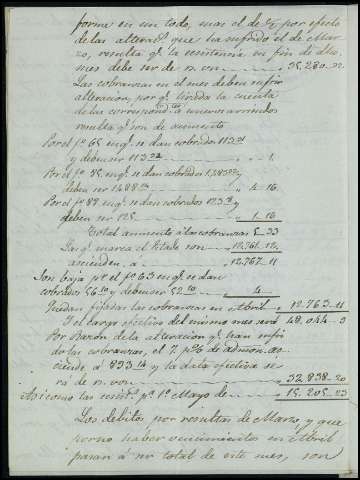 forme en un todo, mas el de   por efecto
de las alterac.s que ha sufrido el de Mar-
zo, resulta q.e la existencia en fin de dho.
mes debe ser de r.s von ... 35,280..22
Las cobranzas en el mes deben sufrir
alteracion, por q.e tirada la cuenta
de las correspond.tes á
resulta q.e son de aumento
Por el f.o 65 en q.e se dan cobrados 113
y deben ser 113 ... " .. 1.
Por el f.o 85 en q.e se dan cobrados
deben ser 1488 ... " 4 .. 16
Por el f.o 88 en q.e se dan cobrados 123 y
deben ser 125 ... 1..16
Total aumento á las cobranzas 5..33
Las q.e marca el Estado son 12,761..12
ascienden á ... 12,767..11
Son baja p.r el f.o 63 en q.e se dan
cobrados 56 y deben ser 52 ... 4
Quedan fijadas las cobranzas en Abril .. 12,763..11
Y el cargo efectivo del mismo mes será 48,044 .. 3
Por Razon de la alteracion q.e han sufri-
do las cobranzas, el 7 p% de admon. as-
ciende á 893 y la data efectiva se-
rá de r.s von ... 32,838..20
Asi como las exist.s p.a 1.o Mayo de 15,205..23
Los debitos por resultas de Marzo y que
por no haber vencimientos en Abril
pasan á ser total de este mes, son